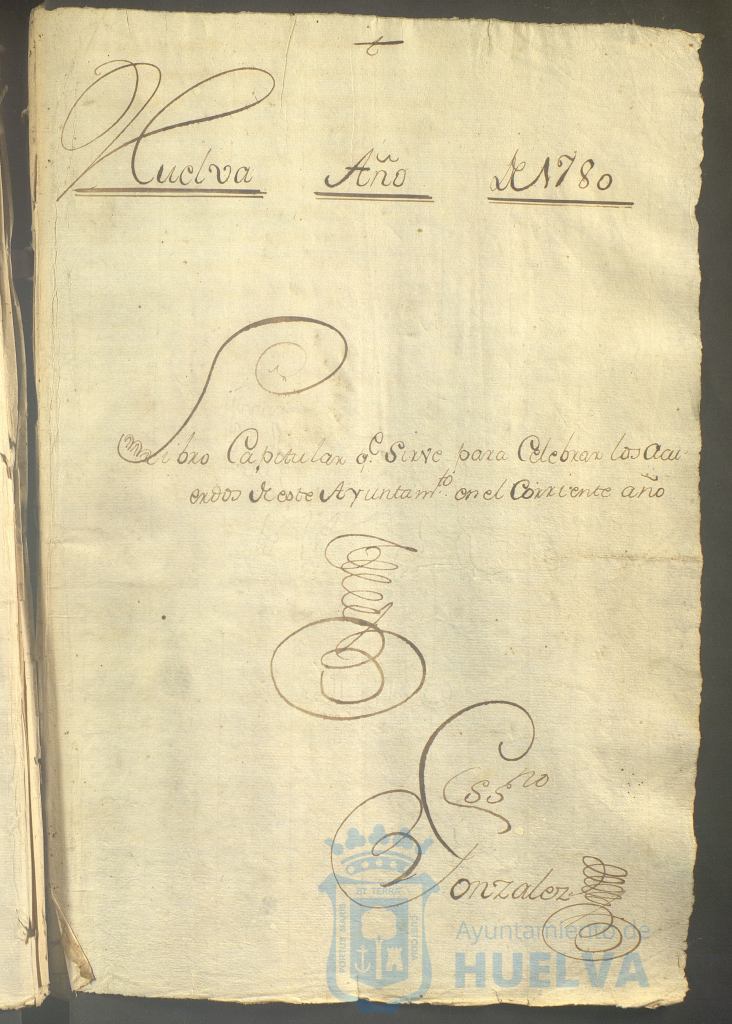 Huelva Año de 1780
Libro Capitular q.e Sirve para Celebrar los Acu-
erdos de este Ayuntam.to en el Corriente año
Ess.no
Gonzalez
Ayuntamiento de
HUELVA
PORTUS MARIS
ET TERRÆ
CUSTODIA